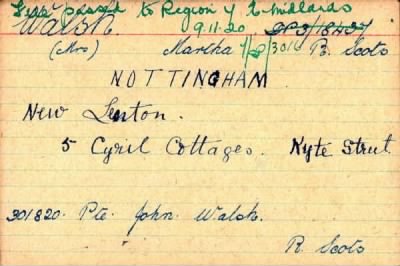 passed to Region 4 E. Midlands
Walsh. 9.11.20
(Mrs) Martha R. Scots
NOTTINGHAM
New Lenton.
5 Cyril Cottages. Kyte Street
301820. Pte. John. Walsh.
R. Scots